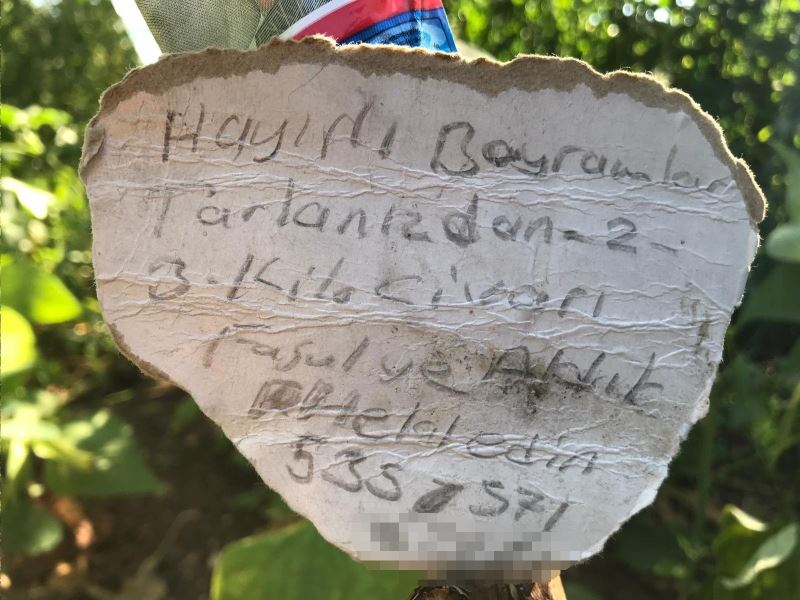 Hayırlı Bayramlar
Tarlanızdan - 2 -
3 - Kilo Civarı
Fasulye Aldık
Helaledin
535 7 571